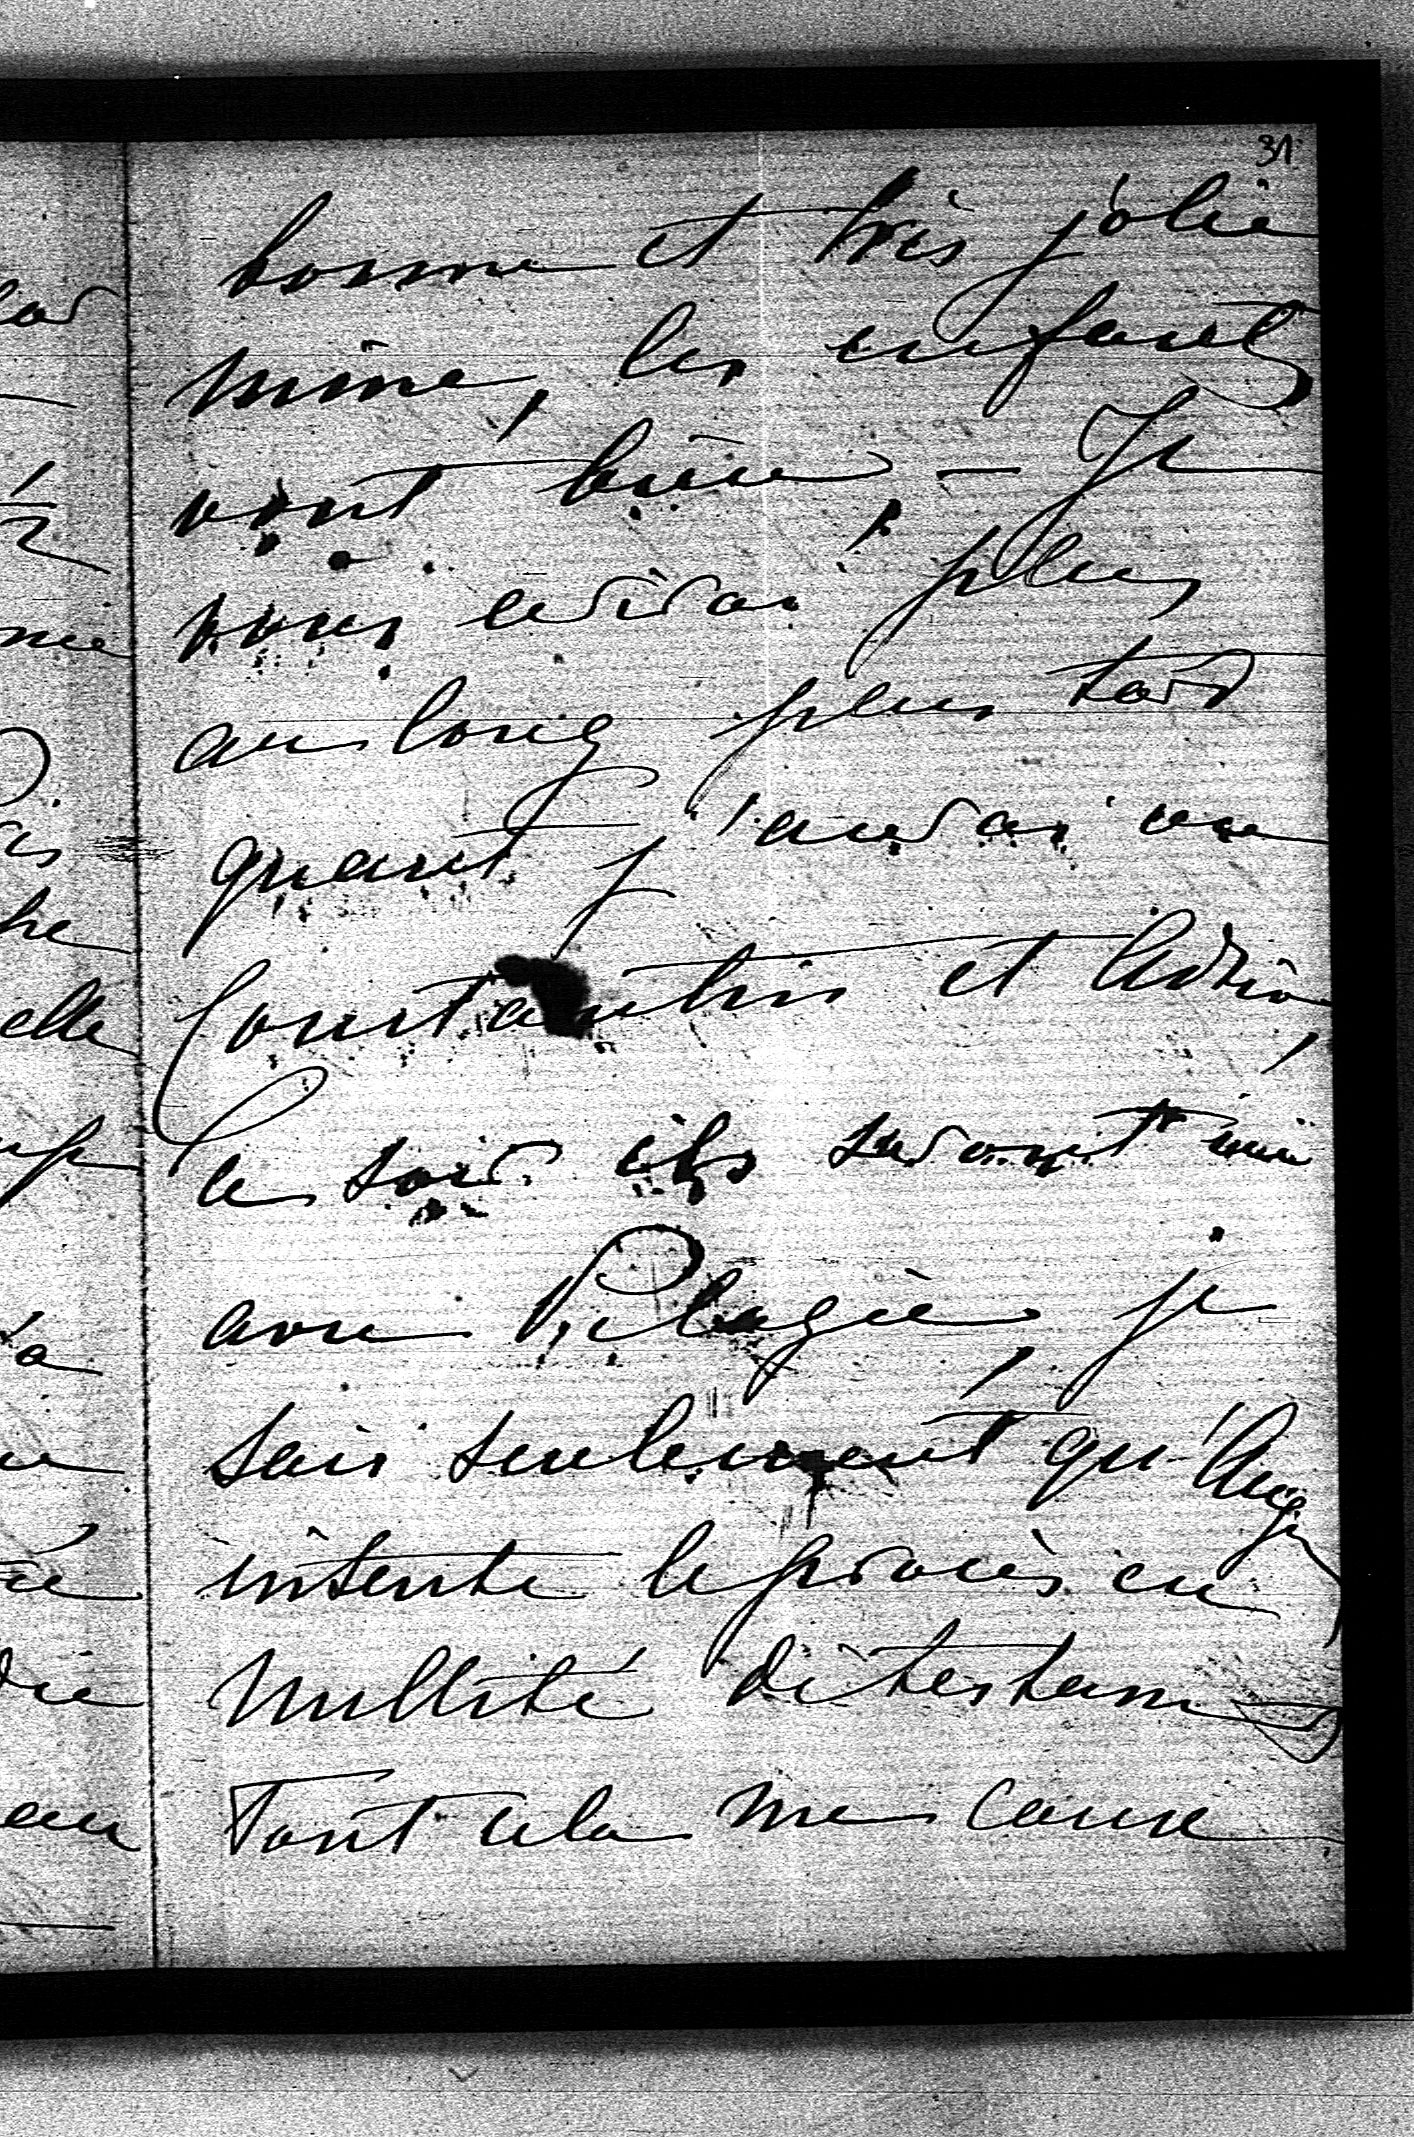 31
bonne et très jolie
mine, les enfants
vont bien, - Je
vous écrirai plus
au long plus tard
quant j'aurai vu
Constantin et Adrien,
ce soir ils seront ici
avec Pélagie, je
sais seulement qu'Ang
intente le procès en
nullité de testam
Tout cela me cause